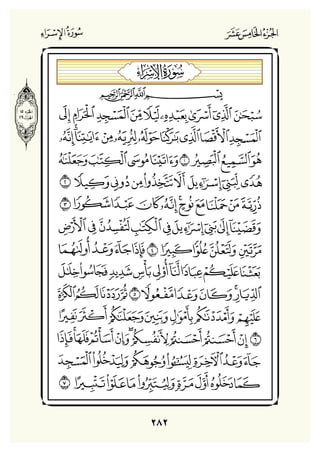 سُورَةُ الإِسۡرَاءِ
الجُزۡءُ الخَامِسَ عَشَرَ
سُورَةُ الإِسۡرَاءِ
بِسۡمِ ٱللَّهِ ٱلرَّحۡمَٰنِ ٱلرَّحِيمِ
سُبۡحَٰنَ ٱلَّذِيٓ أَسۡرَىٰ بِعَبۡدِهِۦ لَيۡلٗا مِّنَ ٱلۡمَسۡجِدِ ٱلۡحَرَامِ إِلَى
ٱلۡمَسۡجِدِ ٱلۡأَقۡصَا ٱلَّذِي بَٰرَكۡنَا حَوۡلَهُۥ لِنُرِيَهُۥ مِنۡ ءَايَٰتِنَآۚ إِنَّهُۥ
هُوَ ٱلسَّمِيعُ ٱلۡبَصِيرُ ١ وَءَاتَيۡنَا مُوسَى ٱلۡكِتَٰبَ وَجَعَلۡنَٰهُ
هُدٗى لِّبَنِيٓ إِسۡرَٰٓءِيلَ أَلَّا تَتَّخِذُواْ مِن دُونِي وَكِيلٗا ٢
ذُرِّيَّةَ مَنۡ حَمَلۡنَا مَعَ نُوحٍۚ إِنَّهُۥ كَانَ عَبۡدٗا شَكُورٗا ٣
وَقَضَيۡنَآ إِلَىٰ بَنِيٓ إِسۡرَٰٓءِيلَ فِي ٱلۡكِتَٰبِ لَتُفۡسِدُنَّ فِي ٱلۡأَرۡضِ
مَرَّتَيۡنِ وَلَتَعۡلُنَّ عُلُوّٗا كَبِيرٗا ٤ فَإِذَا جَآءَ وَعۡدُ أُولَىٰهُمَا
بَعَثۡنَا عَلَيۡكُمۡ عِبَادٗا لَّنَآ أُوْلِي بَأۡسٖ شَدِيدٖ فَجَاسُواْ خِلَٰلَ
ٱلدِّيَارِۚ وَكَانَ وَعۡدٗا مَّفۡعُولٗا ٥ ثُمَّ رَدَدۡنَا لَكُمُ ٱلۡكَرَّةَ
عَلَيۡهِمۡ وَأَمۡدَدۡنَٰكُم بِأَمۡوَٰلٖ وَبَنِينَ وَجَعَلۡنَٰكُمۡ أَكۡثَرَ نَفِيرًا
٦ إِنۡ أَحۡسَنتُمۡ أَحۡسَنتُمۡ لِأَنفُسِكُمۡۖ وَإِنۡ أَسَأۡتُمۡ فَلَهَاۚ فَإِذَا
جَآءَ وَعۡدُ ٱلۡأٓخِرَةِ لِيَسُـُٔواْ وُجُوهَكُمۡ وَلِيَدۡخُلُواْ ٱلۡمَسۡجِدَ
كَمَا دَخَلُوهُ أَوَّلَ مَرَّةٖ وَلِيُتَبِّرُواْ مَا عَلَوۡاْ تَتۡبِيرًا ٧
٢٨٢